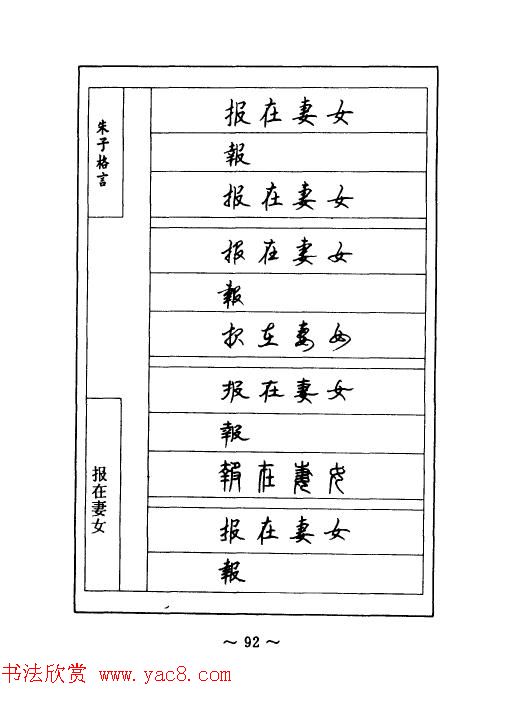 朱子格言
报在妻女
报在妻女
報
报在妻女
报在妻女
報
报在妻女
报在妻女
報
報在妻女
报在妻女
報
～ 92 ～
书法欣赏 www.yac8.com